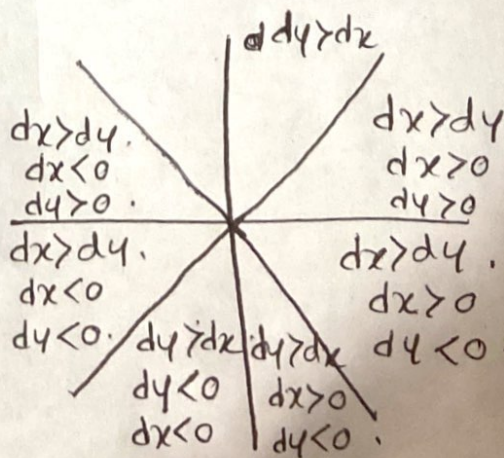 dy>dx
dx>dy.
dx<0
dy>0.
dx>dy
dx>0
dy>0
dx>dy.
dx<0
dy<0.
dx>dy.
dx>0
dy<0
dy>dx
dy<0
dx<0
dy>dx
dx>0
dy<0.